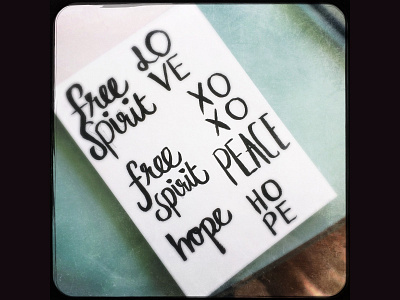 free
spirit
LO
VE
XO
XO
free
spirit
PEACE
hope
HO
PE